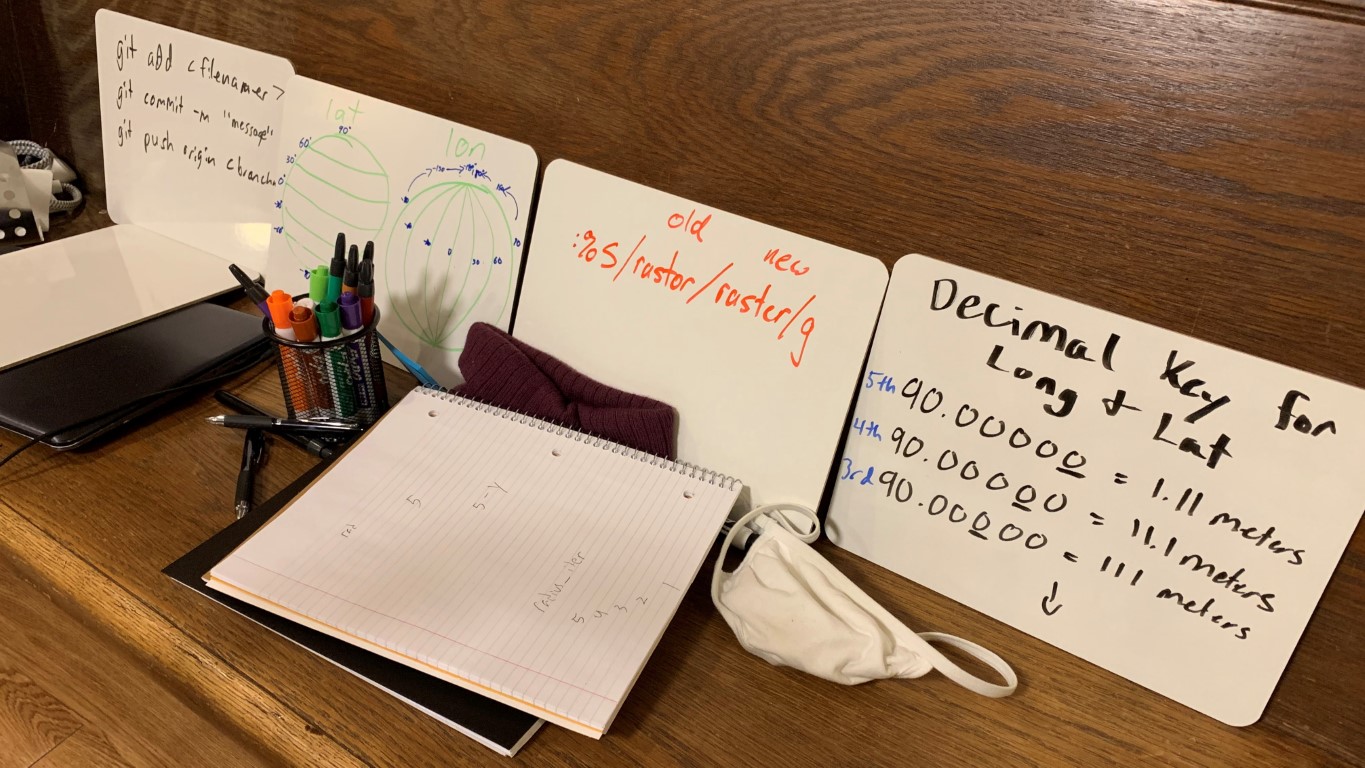 git add <filenames>
git commit -m "message"
git push origin <branch
lat
90°
60°
30°
0°
lon
0
30
60
old new
:%s/rastor/raster/g
Decimal Key for
Long & Lat
5th 90.00000 = 1.11 meters
4th 90.00000 = 11.1 meters
3rd 90.00000 = 111 meters
↓
rad
5
5-y
radius_iter
5 4 3 2 1